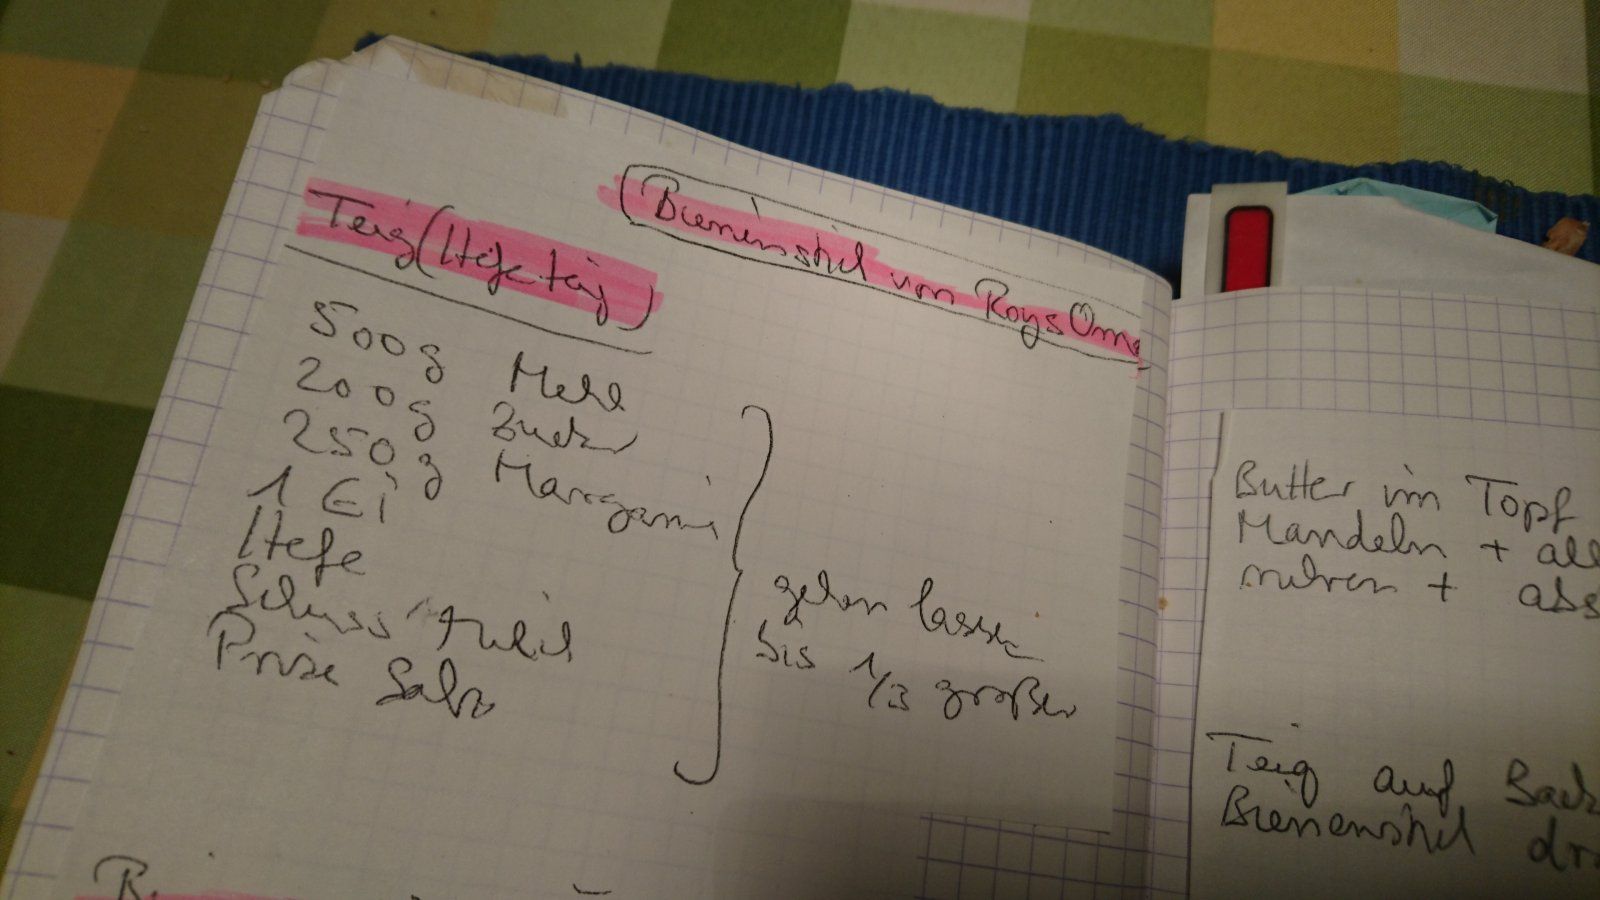 Bienenstich von Roys Oma
Teig (Hefeteig)
500g Mehl
200g Zucker
250g Margarine
1 Ei
Hefe
Schuss Milch
Prise Salz
gehen lassen
bis 1/3 größer
Butter im Topf
Mandeln + all
rühren + abs
Teig auf Back
Bienenstich dr